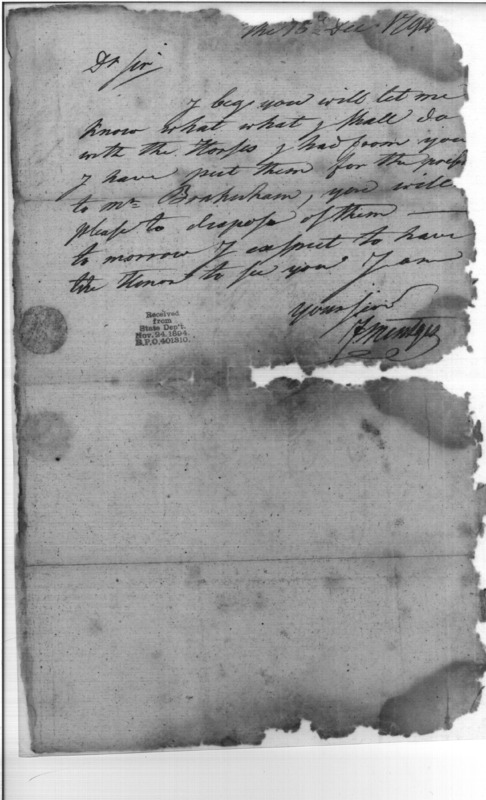 the 15th Dec. 1794
Dr Sir
I beg you will let me
Know what what I shall do
with the Horses I had from you
I have put them for the
to Mr. you will
please to dispose of them —
to morrow I expect to have
the Honor to see you I am
your
Received
from
State Dep't.
Nov. 24, 1894.
R.P.O. 401310.